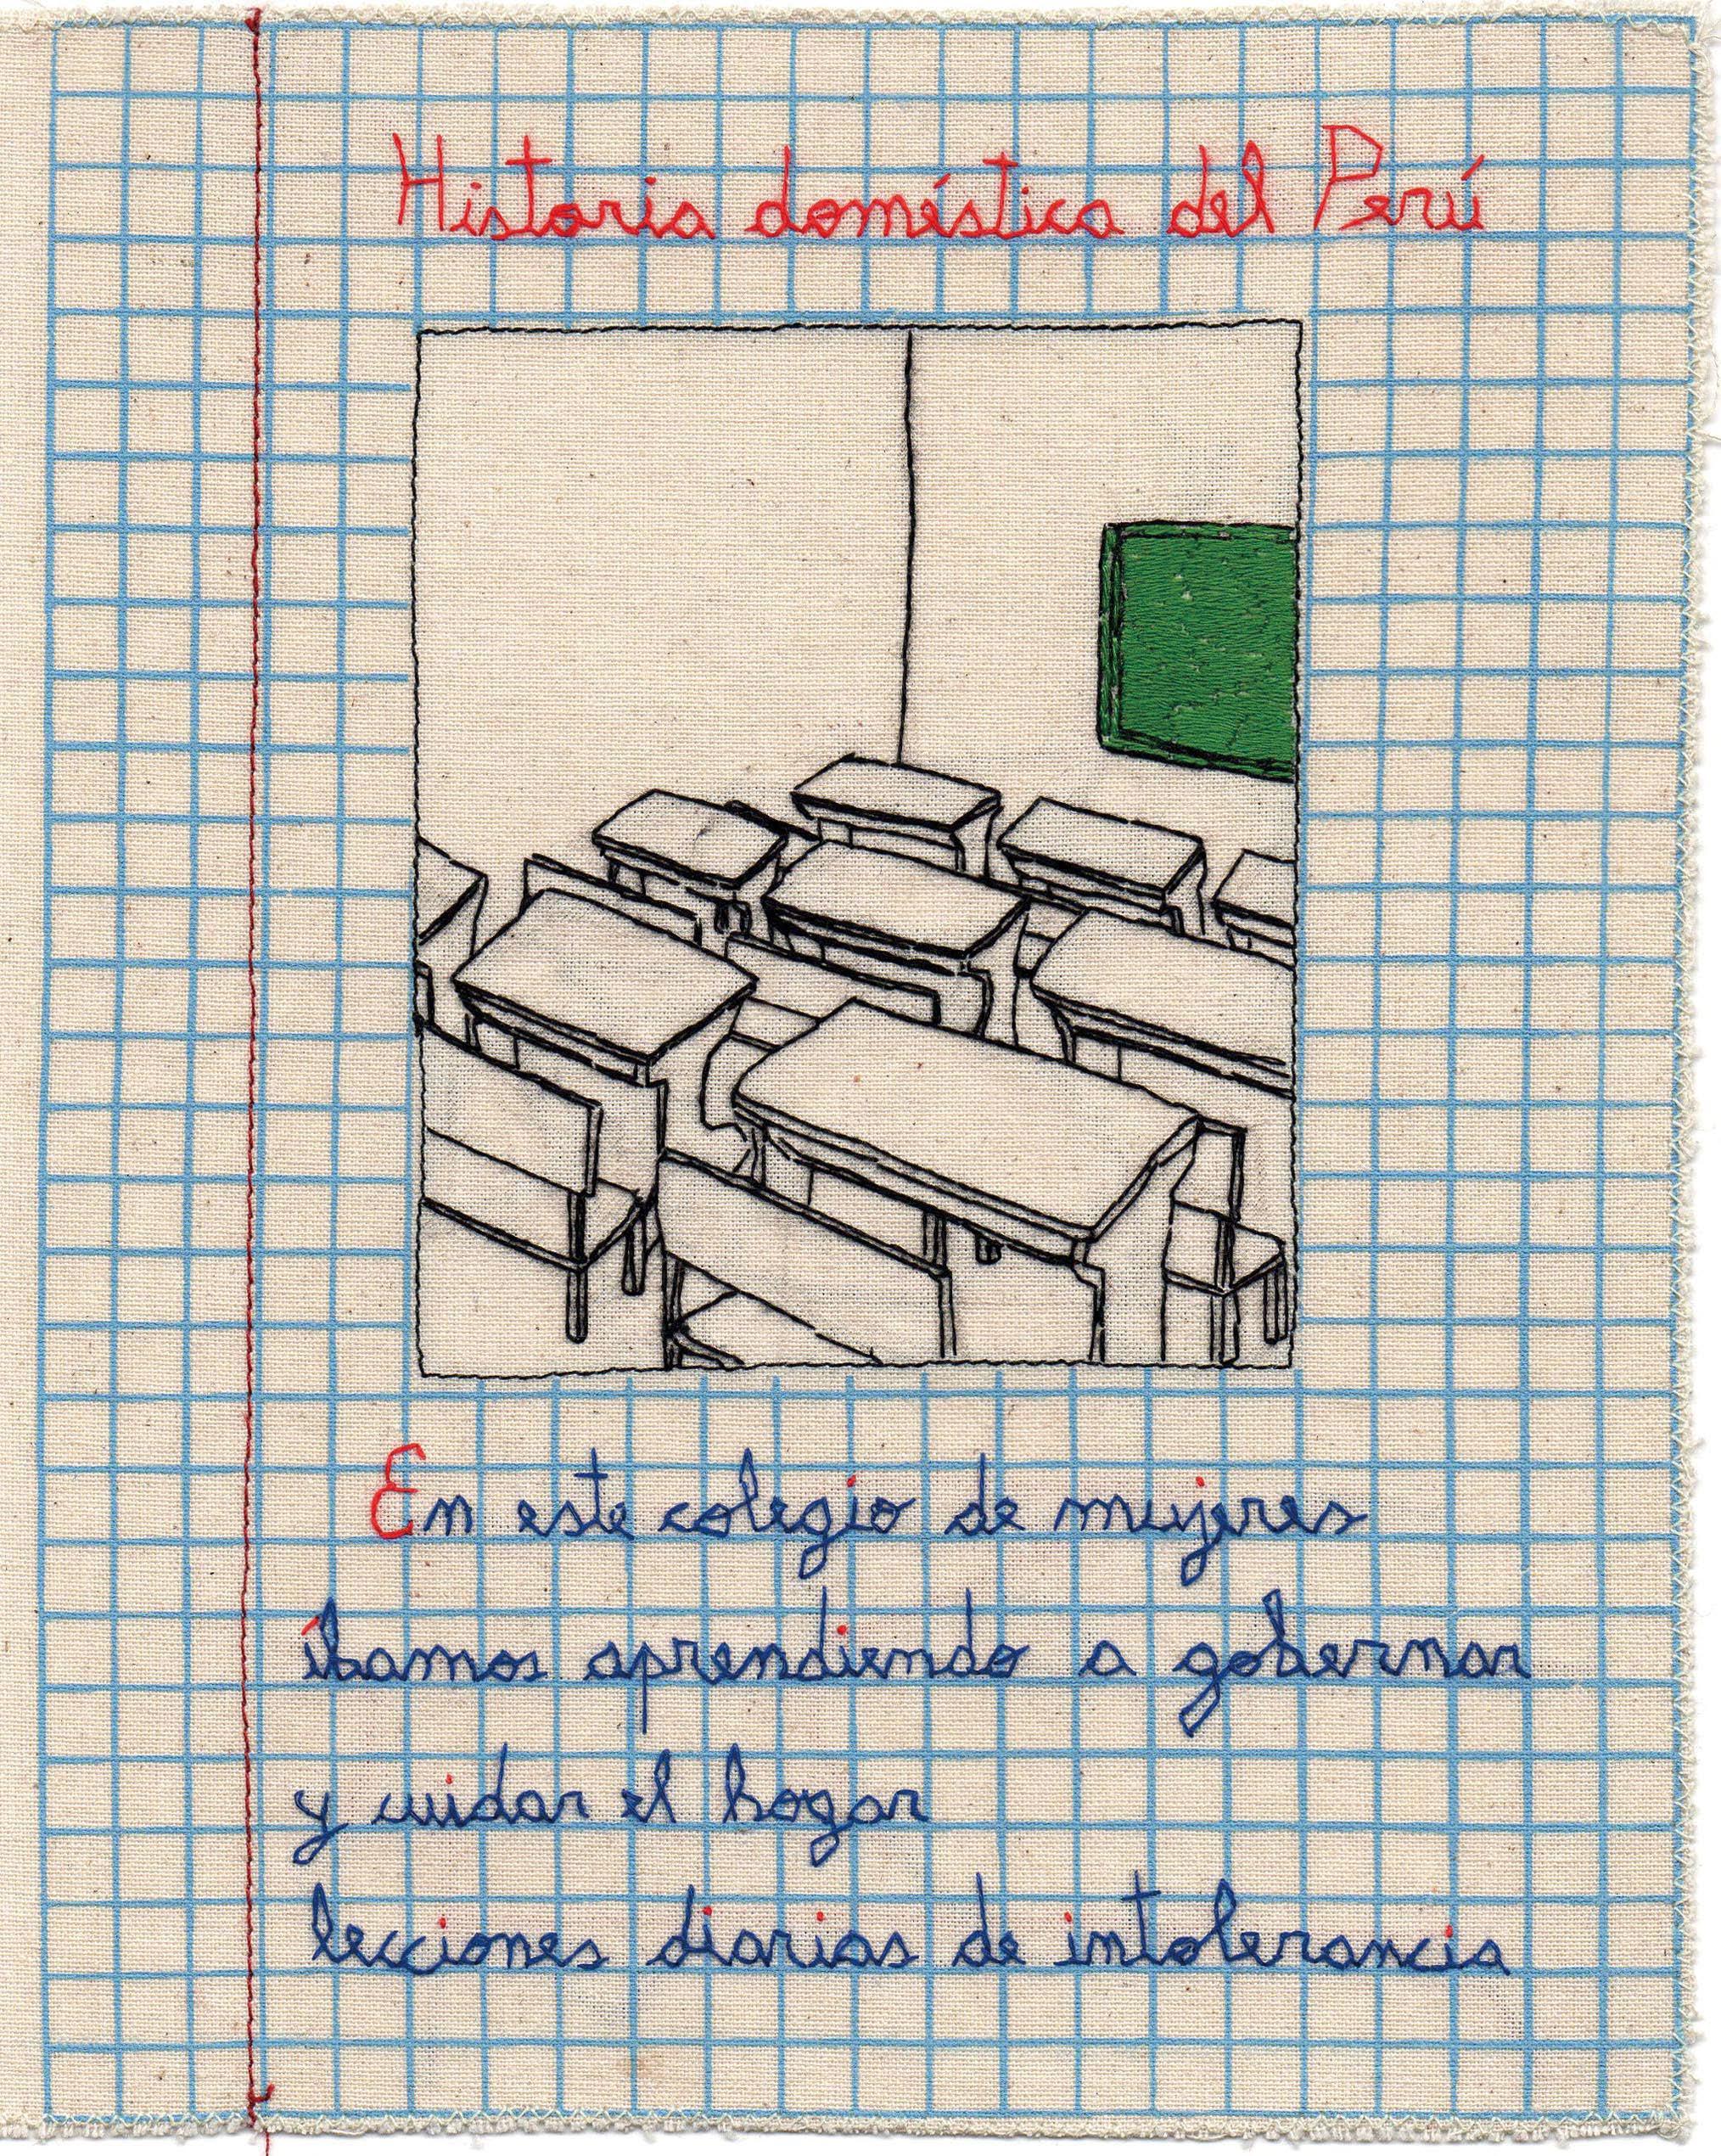 Historia doméstica del Perú
En este colegio de mujeres
íbamos aprendiendo a gobernar
y cuidar el hogar
lecciones diarias de intolerancia